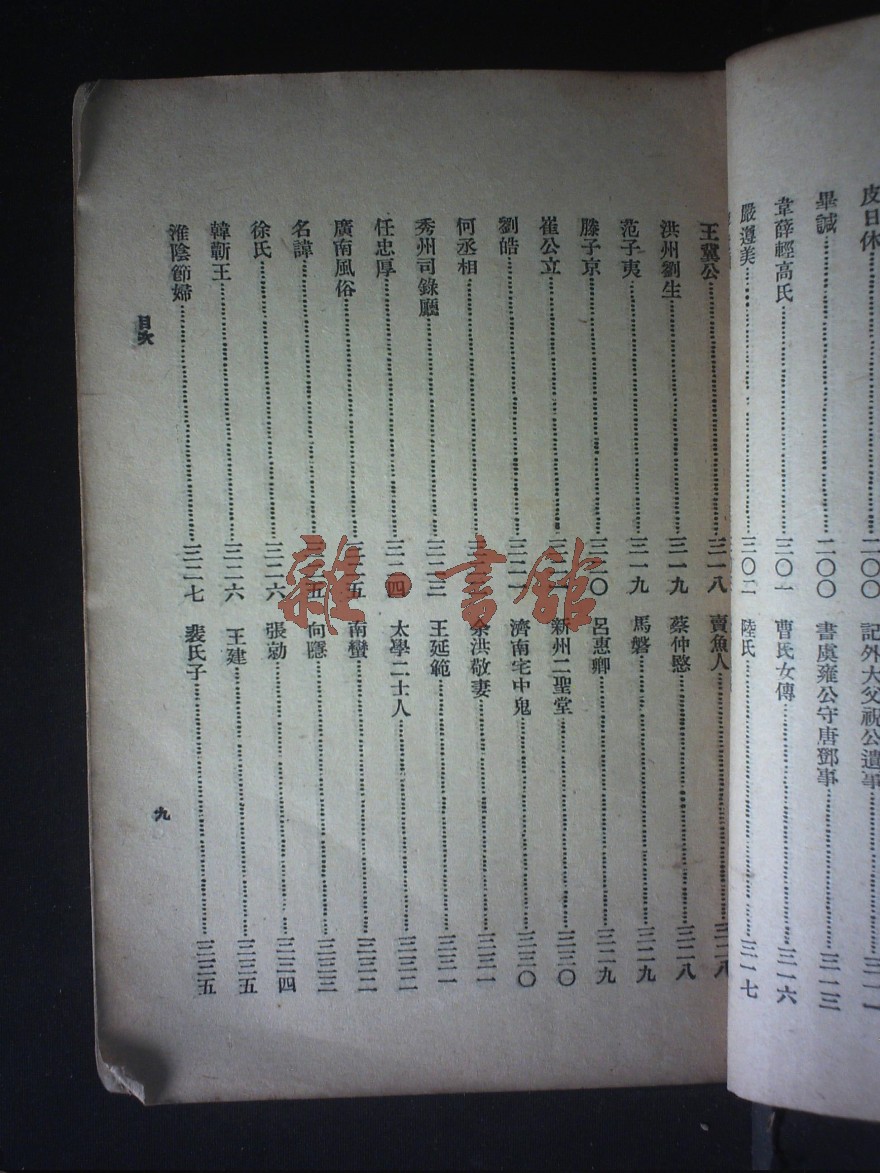 皮日休……二〇〇
畢諴……二〇〇
韋薛輕高氏……三〇一
嚴遵美……三〇二
記外大父祝公遺事……三一一
書虞雍公守唐鄧事……三一三
曹氏女傳……三一六
陸氏……三一七
王冀公……三一八
洪州劉生……三一九
范子夷……三一九
滕子京……三二〇
崔公立……
劉皓……三二一
何丞相……
秀州司錄廳……三二三
任忠厚……三二四
廣南風俗……三二五
名諱……三二五
徐氏……三二六
韓蘄王……三二六
淮陰節婦……三二七
賣魚人……三二八
蔡仲愍……三二八
馬磐……三二九
呂惠卿……三二九
新州二聖堂……三三〇
濟南宅中鬼……三三〇
余洪敬妻……三三一
王延範……三三一
太學二士人……三三二
南蠻……三三二
向隱……三三三
張勍……三三四
王建……三三五
裴氏子……三三五
目次
九
雜·書館